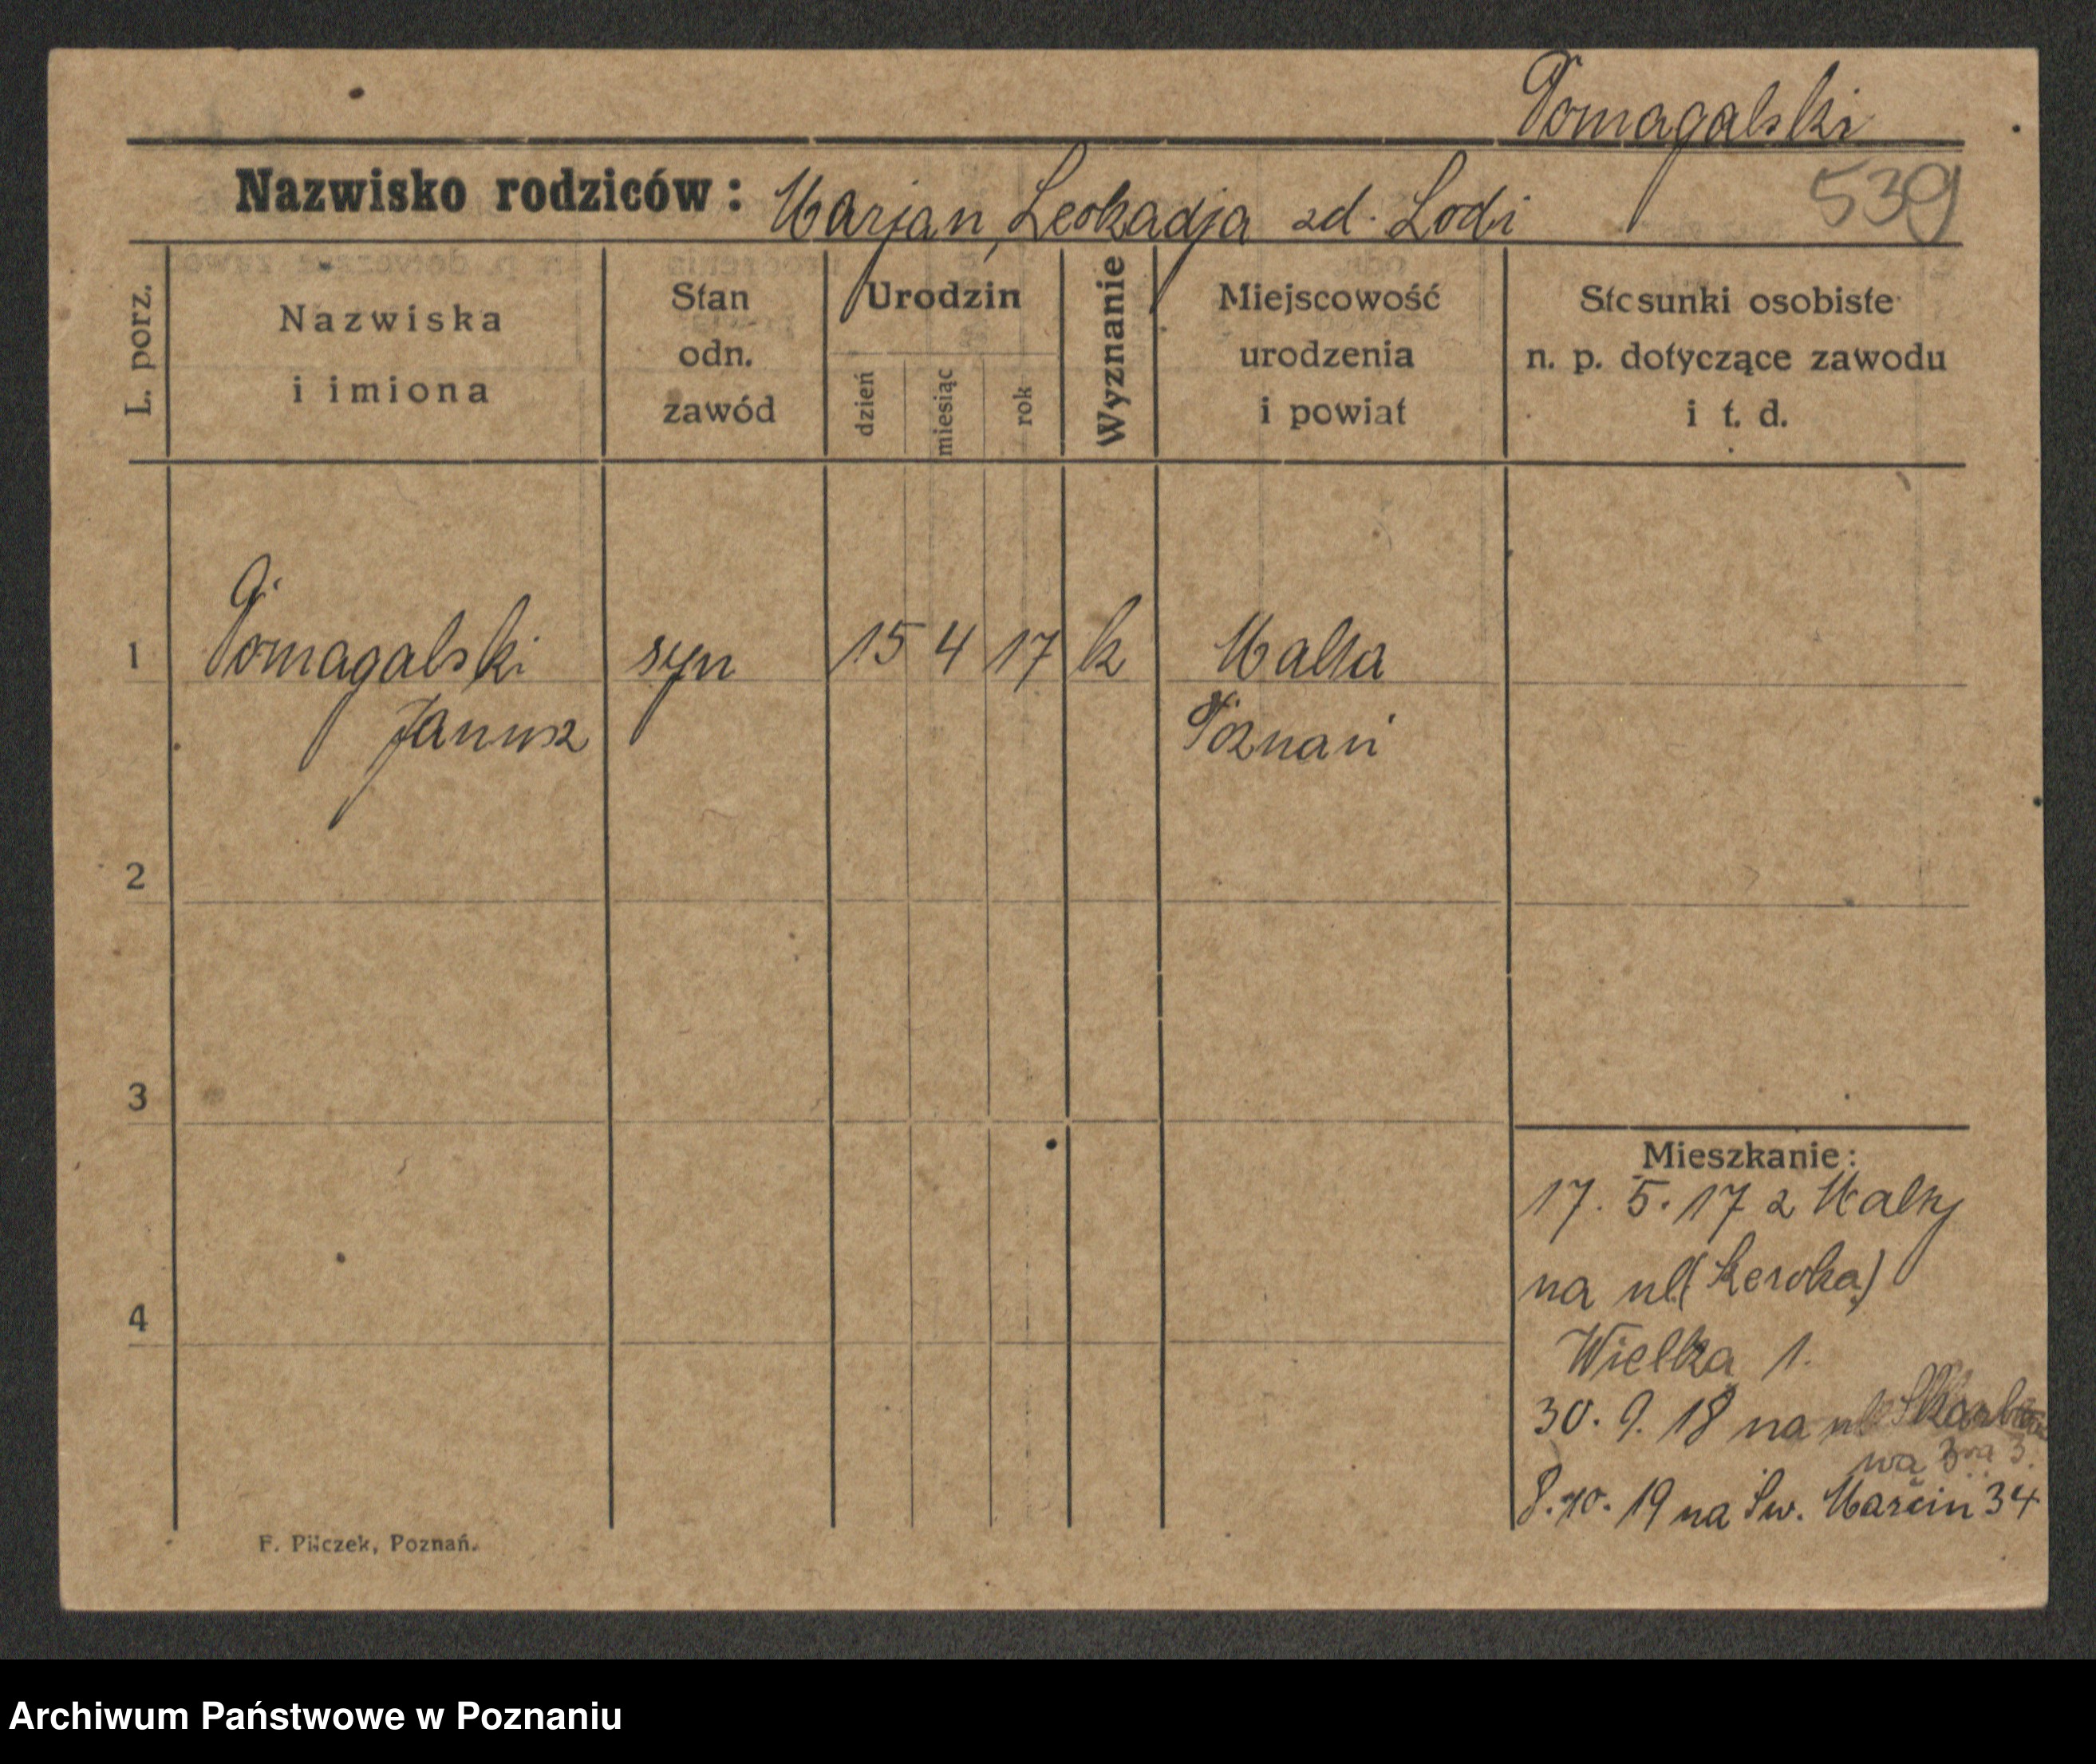 Pomagalski
539
Nazwisko rodziców: Marjan, Leokadja zd. Lodi
L. porz.
Nazwiska i imiona
Stan odn. zawód
Urodzin
dzień
miesiąc
rok
Wyznanie
Miejscowość urodzenia i powiat
Stosunki osobiste n. p. dotyczące zawodu i t. d.
1 Pomagalski syn 15 4 17 k Malta
Janusz Poznań
2
3
4
Mieszkanie:
17. 5. 17 z Malty
na ul
Wielka 1.
30. 9. 18 na ul
wą 3
8. 10. 19 na Św. Marcin 34
F. Pilczek, Poznań.
Archiwum Państwowe w Poznaniu